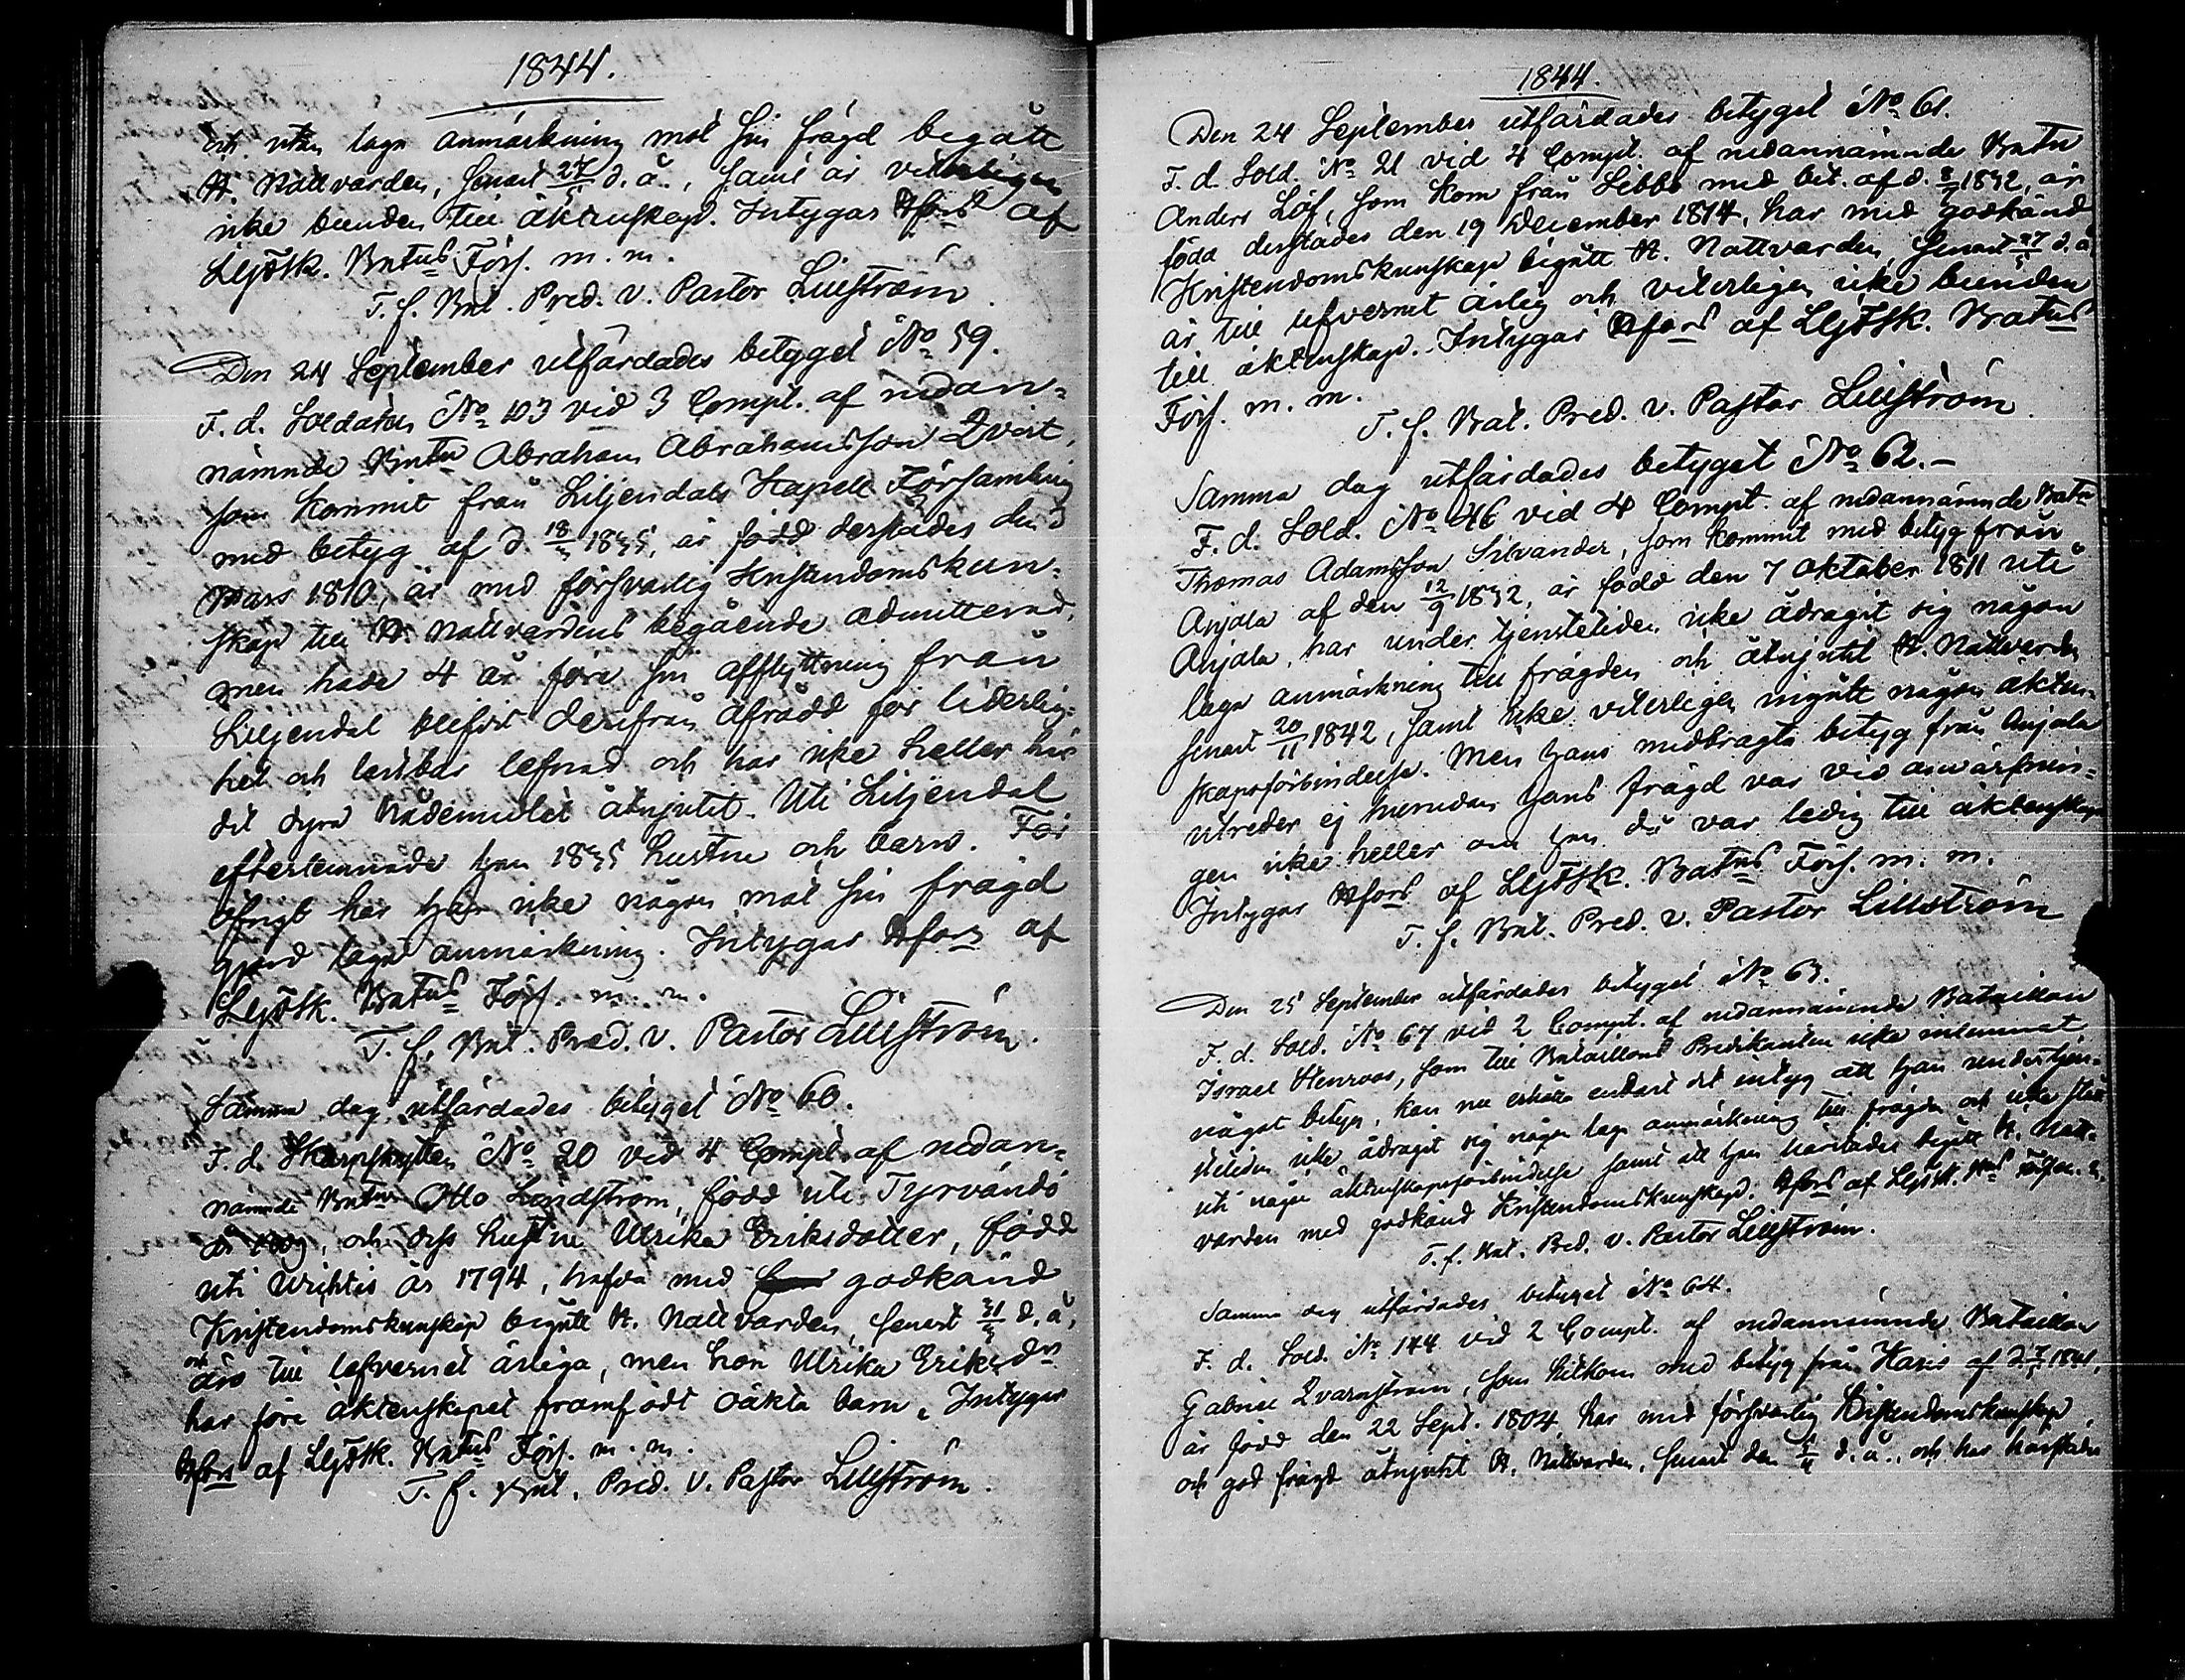 1844.
och utan laga anmärkning mot sin frägd begått
H. Nattvarden, senast 27/5 d. å., samt är veterligen
icke bunden till äktenskap. Intygar H:fors af
LljFSk. Batns Förs. m. m.
T. f. Bat. Pred. v. Pastor Lillström.
Den 24 September utfärdades betyget No 59.
F. d. Soldaten No 103 vid 3 Compt. af nedan=
nämnde Batn Abraham Abrahamsson Qvist,
som kommit från Liljendals Kapell Församling
med betyg af d. 18/3 1835, är född derstädes den 3
Mars 1810, är med försvarlig Kristendomskun=
skap till H. Nattvardens begående admitterad,
men hade 4 år före sin afflyttning från
Liljendal blifvit derifrån afrådd för liderlig=
het och lastbar lefnad och har icke heller här
det dyra Nådemedlet åtnjutit. Uti Liljendal
efterlemnade han 1835 hustru och barn. För
öfrigt har han icke någon mot sin frägd
gjord laga anmärkning. Intygar H:fors af
LljFSk. Batns Förs. m. m.
T. f. Bat. Pred. v. Pastor Lillström.
Samma dag utfärdades betyget No 60.
F. d. Skarpskytten No 20 vid 4 Compt. af nedan=
nämnde Batn Otto Landström, född uti Tyrvändö
år, och dess hustru Ulrika Eriksdotter, född
uti Wichtis år 1794, hafva med godkänd
Kristendomskunskap begått H. Nattvarden, senast 31/3 d. å,
och äro till lefvernet ärliga, men hon Ulrika Eriksdr
har före äktenskapet framfödt oäkta barn. Intygar
H:fors af LljFSk. Batns Förs. m. m.
T. f. Bat. Pred. v. Pastor Lillström.
1844.
Den 24 September utfärdades betyget No 61.
F. d. Sold. No 21 vid 4 Compt. af nedannämnde Batn
Anders Löf, som kom från Sebbo med bet. af d. 1832, är
född derstädes den 19 December 1814, har med godkänd
Kristendomskunskap begått H. Nattvarden, senast 27/5 d. å
är till lefvernet ärlig och veterligen icke bunden
till äktenskap. Intygar H:fors af LljFSk. Batns
Förs. m. m.
T. f. Bat. Pred. v. Pastor Lillström.
Samma dag utfärdades betyget No 62.—
F. d. Sold. No 46 vid 4 Compt. af nedannämnde Batn
Thomas Adamsson Silvander, som kommit med betyg från
Anjala af den 12/9 1832, är född den 7 oktober 1811 uti
Anjala, har under tjenstetiden icke ådragit sig någon
laga anmärkning till frägden och åtnjutit H. Nattvarden
senast 20/11 1842, samt icke veterligen ingått någon äkten=
skapsförbindelse. Men hans medbragta betyg från Anjala
utreder ej hurudan hans frägd var vid anvärfnin=
gen icke heller om han då var ledig till äktenskap
Intygar H:fors af LljFSk. Batns Förs. m. m.
T. f. Bat. Pred. v. Pastor Lillström
Den 25 September utfärdades betyget No 63.
F. d. Sold. No 67 vid 2 Compt. af nedannämnde Bataillon
Israel Stenroos, som till Bataillons Predikanten icke inlemnat
något betyg, kan nu erhålla endast det intyg att han under tjen=
stetiden icke ådragit sig någon laga anmärkning till frägden och icke stått
uti någon äktenskapsförbindelse samt att han härstädes begått H. Natt=
varden med godkänd Kristendomskunskap. H:fors af LljFSk.
T. f. Bat. Pred. v. Pastor Lillström.
Samma dag utfärdades betyget No 64.
F. d. Sold. No 144 vid 2 Compt. af nedannämnde Bataillon
Gabriel Qvarnström, som hitkom med betyg från Karis af d. 1841,
är född den 22 Sept. 1804, har med försvarlig Kristendomskunskap
och god frägd åtnjutit H. Nattvarden, senast den d. å., och har härstädes